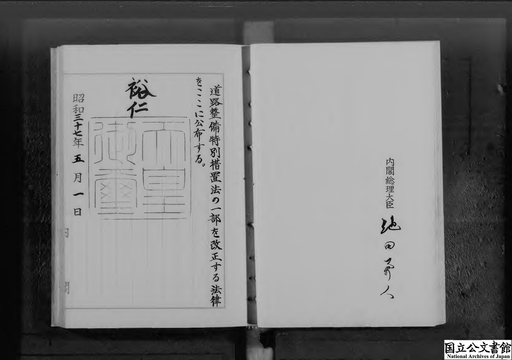 道路整備特別措置法の一部を改正する法律
をここに公布する。
裕仁
天皇御璽
昭和三十七年五月一日
内閣総理大臣
池田勇人
国立公文書館
National Archives of Japan